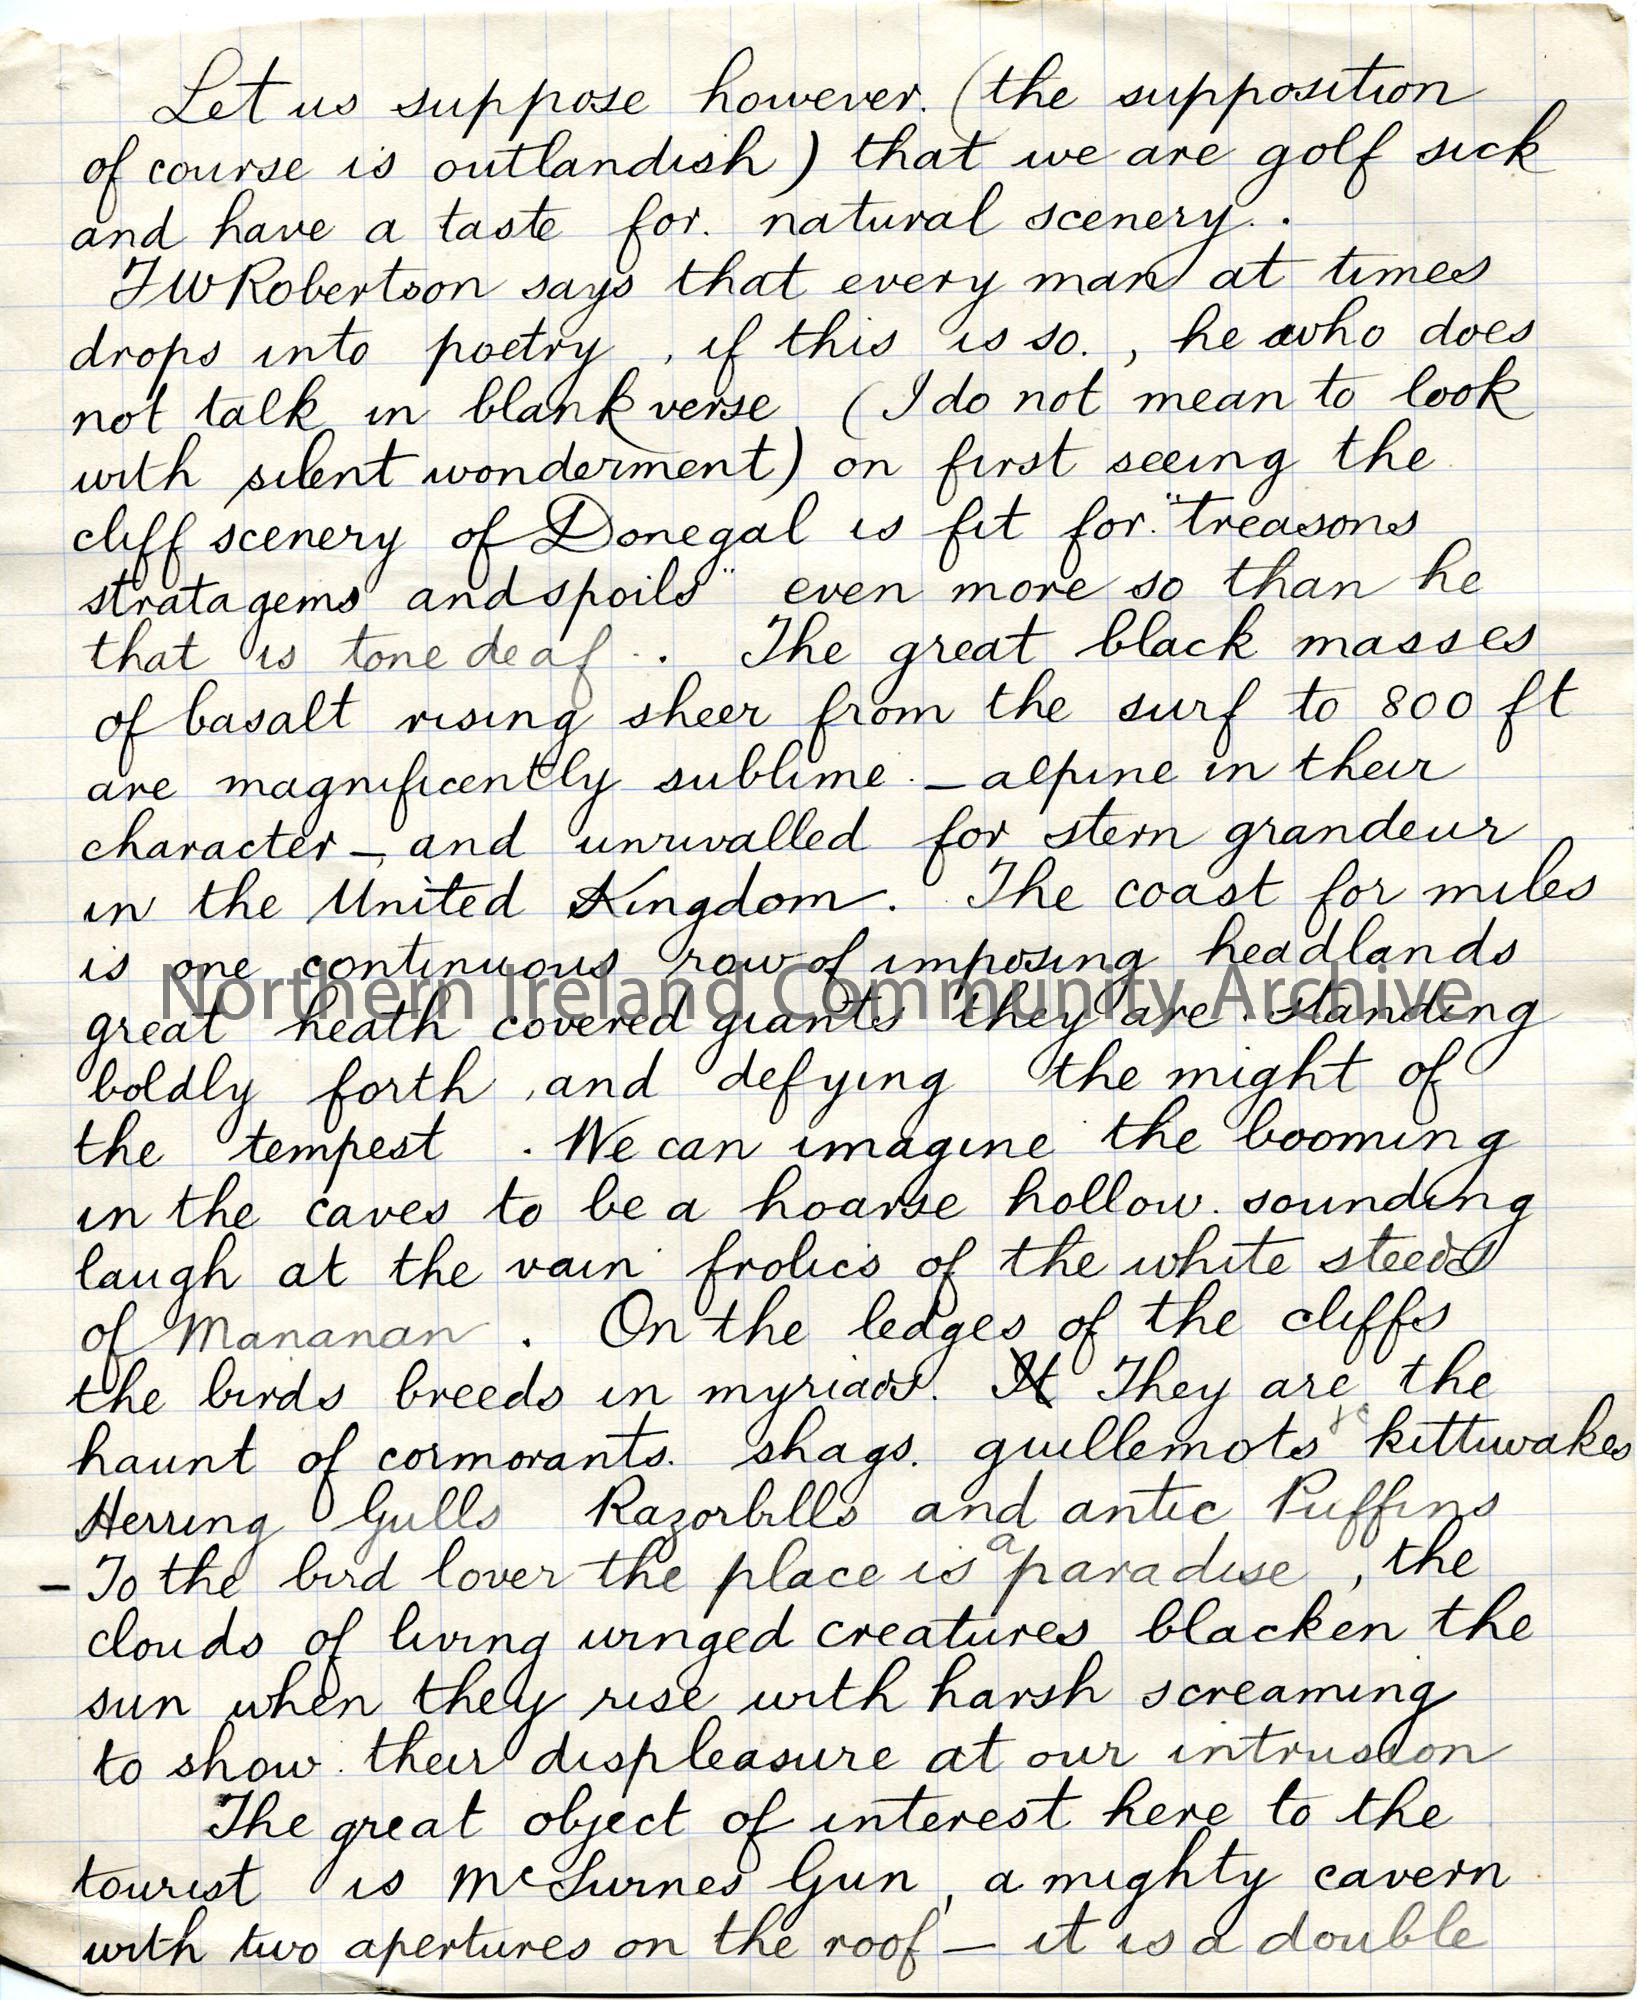 Let us suppose however. (the supposition
of course is outlandish) that we are golf sick
and have a taste for. natural scenery..
FW Robertson says that every man at times
drops into poetry, if this is so., he who does
not talk in blank verse (I do not mean to look
with silent wonderment) on first seeing the
cliff scenery of Donegal is fit for. "treasons
stratagems and spoils" even more so than he
that is tone deaf. . The great black masses
of basalt rising sheer from the surf to 800 ft
are magnificently sublime. – alpine in their
character –, and unrivalled for stern grandeur
in the United Kingdom. The coast for miles
is one continuous row of imposing headlands
Northern Ireland Community Archive
great heath covered giants they are. standing
boldly forth, and defying the might of
the tempest . We can imagine the booming
in the caves to be a hoarse hollow. sounding
laugh at the vain frolics of the white steeds
of Mananan . On the ledges of the cliffs
the birds breeds in myriads. It They are the
haunt of cormorants. shags. guillemots kittiwakes
Herring Gulls Razorbills and antic Puffins
– To the bird lover the place is a paradise, the
clouds of living winged creatures blacken the
sun when they rise with harsh screaming
to show. their displeasure at our intrusion
The great object of interest here to the
tourist is Gun, a mighty cavern
with two apertures on the roof – it is a double